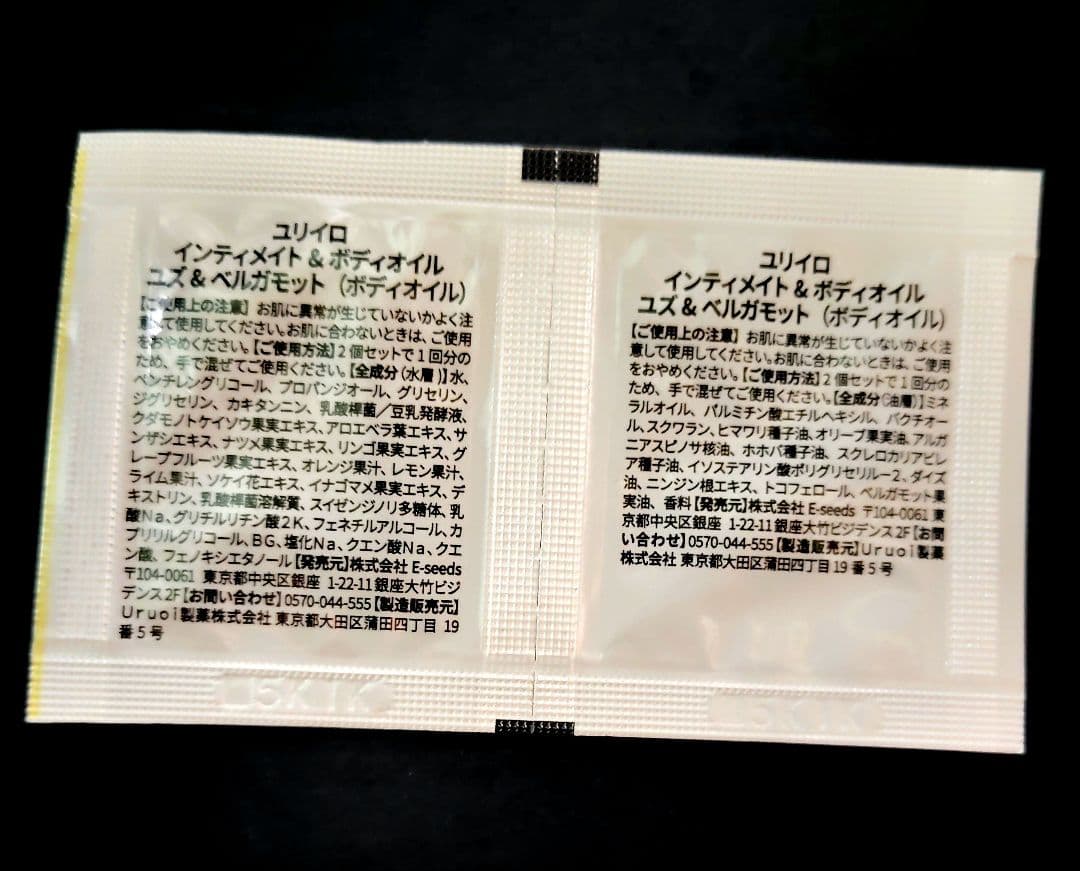 ユリイロ
インティメイト & ボディオイル
ユズ & ベルガモット（ボディオイル）
【ご使用上の注意】お肌に異常が生じていないかよく注
意して使用してください。お肌に合わないときは、ご使用
をおやめください。【ご使用方法】2個セットで1回分の
ため、手で混ぜてご使用ください。【全成分（水層）】水、
ペンチレングリコール、プロパンジオール、グリセリン、
ジグリセリン、カキタンニン、乳酸桿菌／豆乳発酵液、
クダモノトケイソウ果実エキス、アロエベラ葉エキス、サ
ンザシエキス、ナツメ果実エキス、リンゴ果実エキス、グ
レープフルーツ果実エキス、オレンジ果汁、レモン果汁、
ライム果汁、ソケイ花エキス、イナゴマメ果実エキス、デ
キストリン、乳酸桿菌溶解質、スイゼンジノリ多糖体、乳
酸Na、グリチルリチン酸2K、フェネチルアルコール、カ
プリリルグリコール、BG、塩化Na、クエン酸Na、クエ
ン酸、フェノキシエタノール【発売元】株式会社 E-seeds
〒104-0061 東京都中央区銀座 1-22-11 銀座大竹ビジ
デンス 2F【お問い合わせ】0570-044-555【製造販売元】
Uruoi製薬株式会社 東京都大田区蒲田四丁目 19
番 5 号
ユリイロ
インティメイト & ボディオイル
ユズ & ベルガモット（ボディオイル）
【ご使用上の注意】お肌に異常が生じていないかよく注
意して使用してください。お肌に合わないときは、ご使用
をおやめください。【ご使用方法】2個セットで1回分の
ため、手で混ぜてご使用ください。【全成分（油層）】ミネ
ラルオイル、パルミチン酸エチルヘキシル、バクチオー
ル、スクワラン、ヒマワリ種子油、オリーブ果実油、アルガ
ニアスピノサ核油、ホホバ種子油、スクレロカリアビレ
ア種子油、イソステアリン酸ポリグリセリル－2、ダイズ
油、ニンジン根エキス、トコフェロール、ベルガモット果
実油、香料【発売元】株式会社 E-seeds 〒104-0061 東
京都中央区銀座 1-22-11 銀座大竹ビジデンス 2F【お問
い合わせ】0570-044-555【製造販売元】Uruoi製薬
株式会社 東京都大田区蒲田四丁目 19 番 5 号